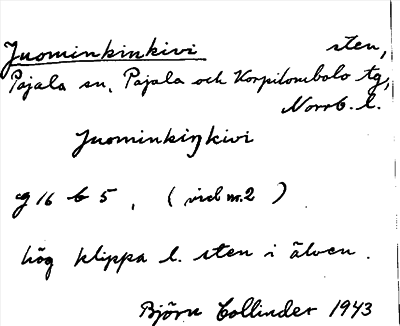 Juominkinkivi sten,
Pajala sn, Pajala och Korpilombolo tg,
Norrb. l.
Juominkiŋkivi
g 16 b 5, (vid nr. 2)
hög klippa l. sten i älven.
Björn Collinder 1943